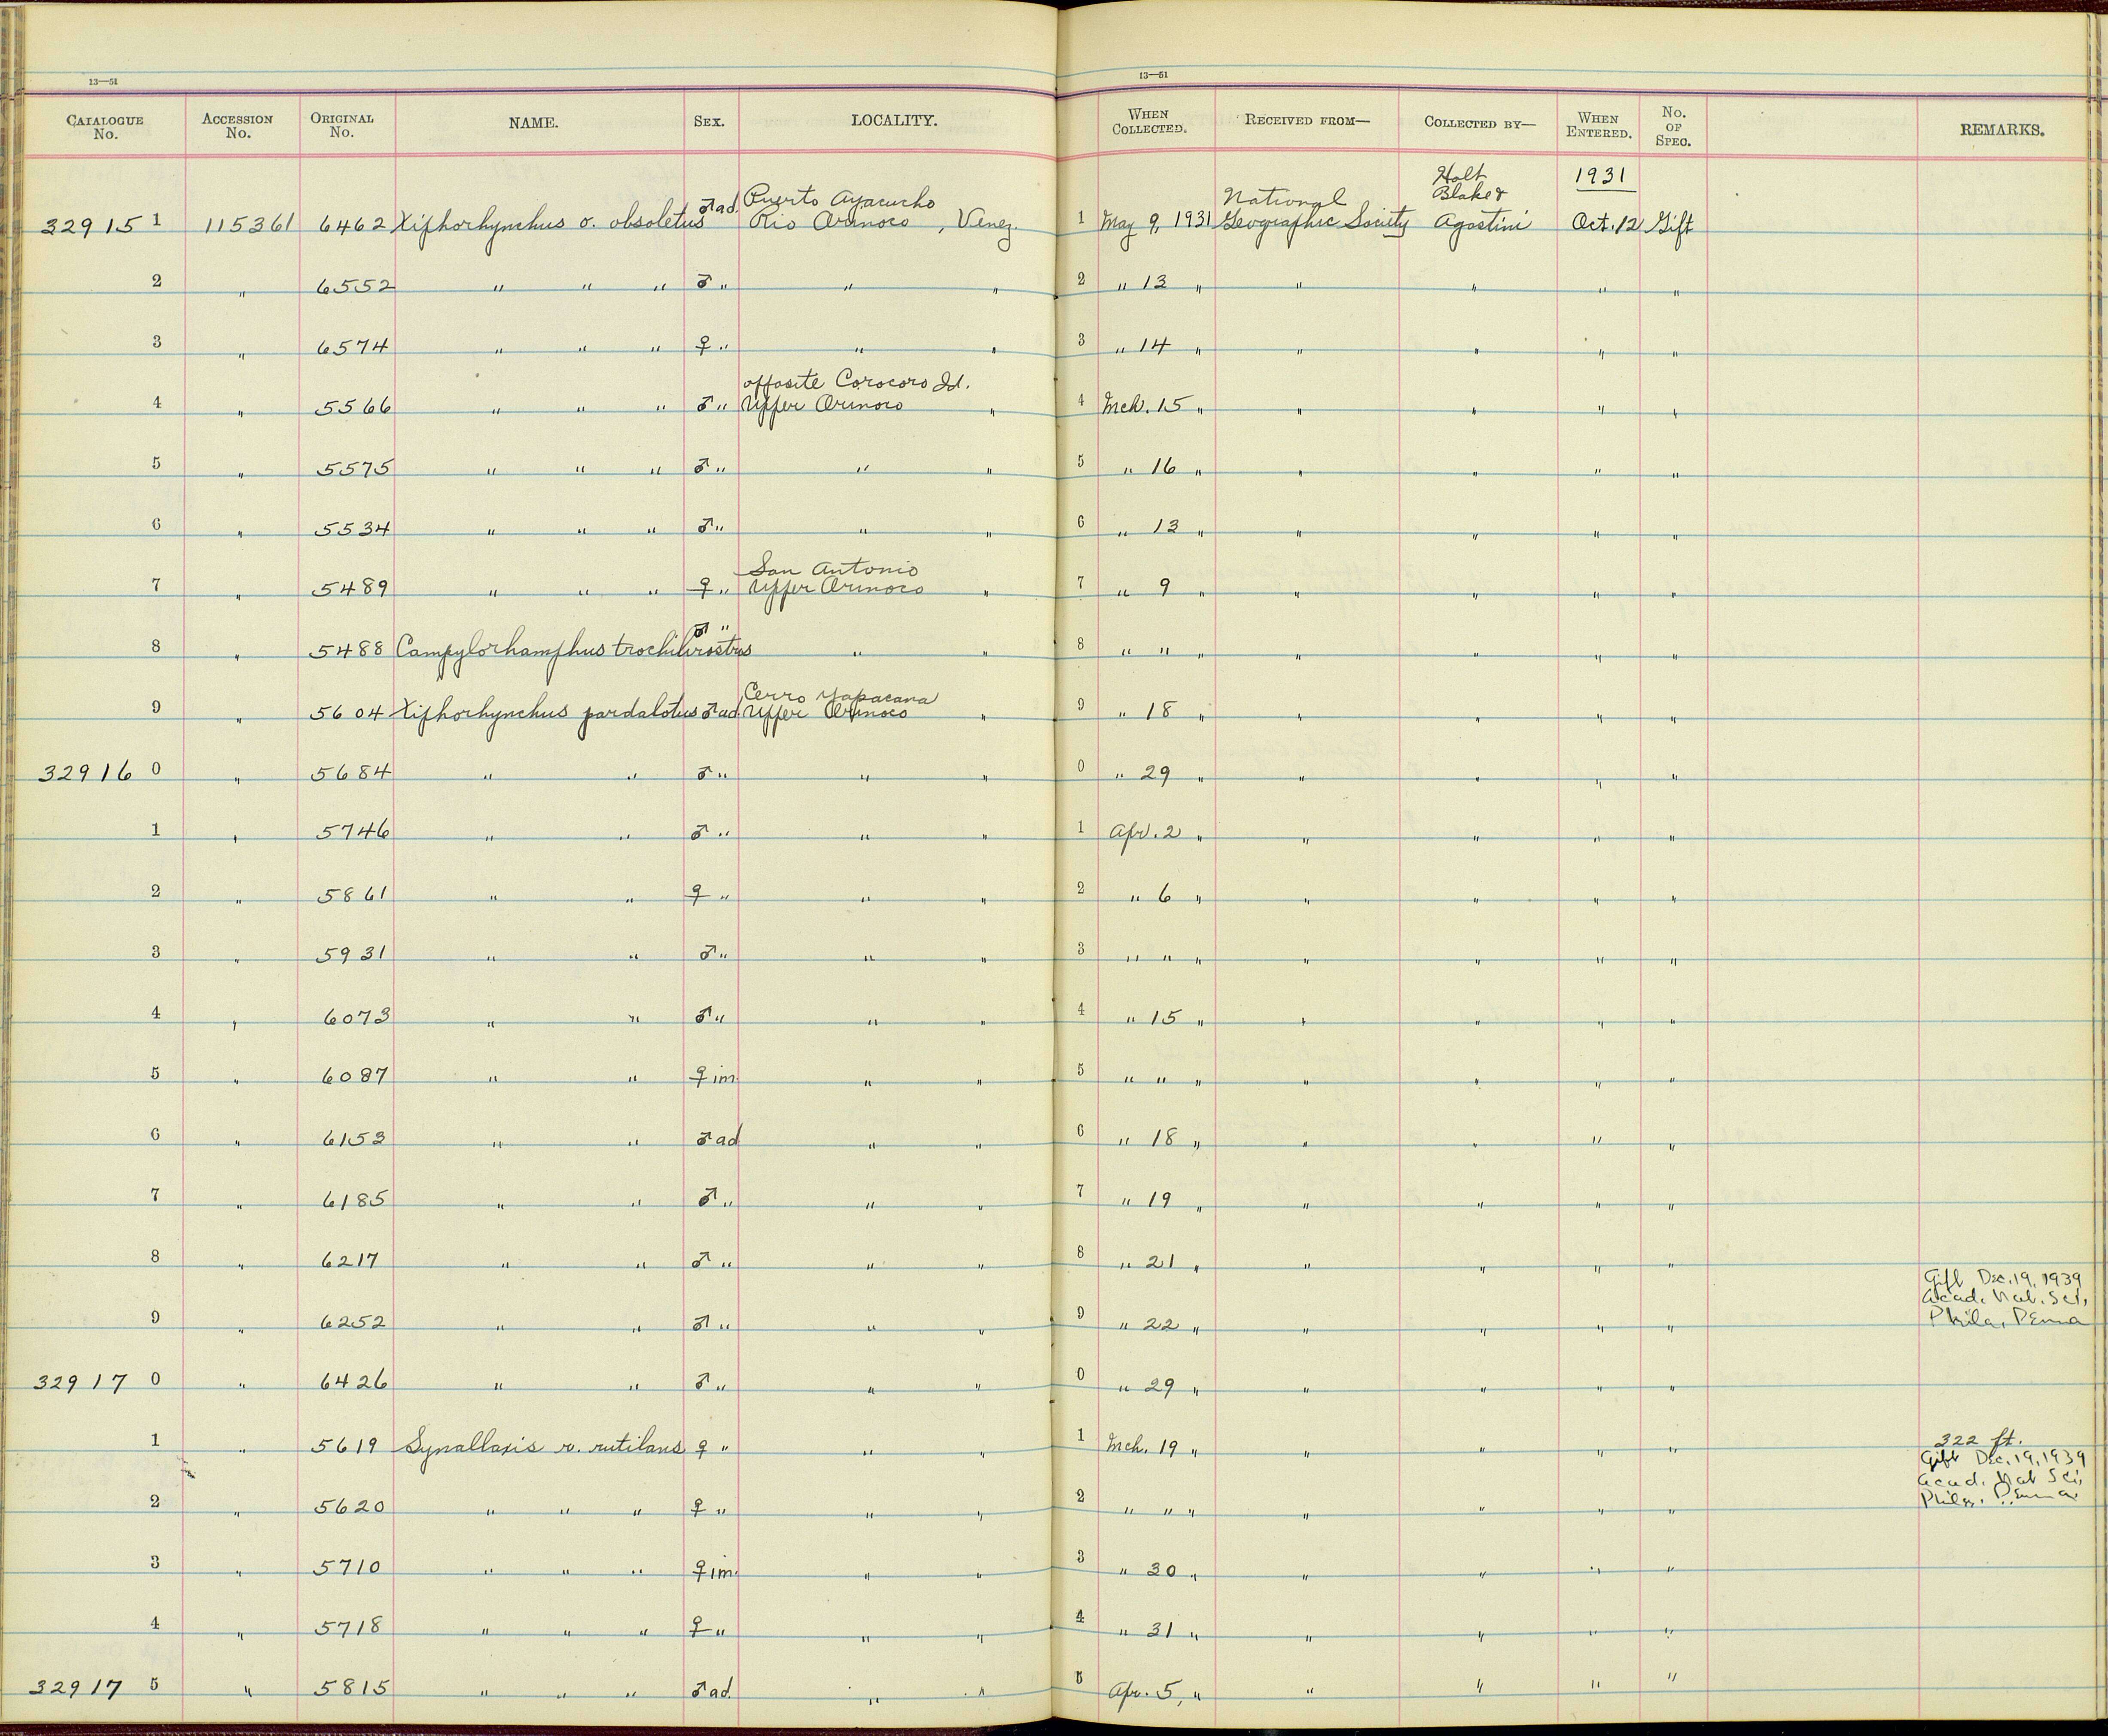 13—51 13—51
CATALOGUE No. ACCESSION No. ORIGINAL No. NAME. SEX. LOCALITY. WHEN COLLECTED. RECEIVED FROM— COLLECTED BY— WHEN ENTERED. No. OF SPEC. REMARKS.
Holt 1931
Puerto Ayacucho National Blake &
32915 1 115361 6462 Xiphorhynchus o. obsoletus ♂ad. Rio Orinoco, Venez. 1 May 9, 1931 Geographic Society Agostini Oct. 12 Gift
2 " 6552 " " " ♂ " " " 2 " 13 " " " " "
3 " 6574 " " " ♀ " " " 3 " 14 " " " " "
opposite Corocoro Id.
4 " 5566 " " " ♂ " Upper Orinoco " 4 Mch. 15 " " " " "
5 " 5575 " " " ♂ " " " 5 " 16 " " " " "
6 " 5534 " " " ♂ " " " 6 " 13 " " " " "
San Antonio
7 " 5489 " " " ♀ " Upper Orinoco " 7 " 9 " " " " "
8 " 5488 Campylorhamphus trochilirostris ♂ " " " 8 " " " " " " "
Cerro Yapacana
9 " 5604 Xiphorhynchus pardalotus ♂ad. Upper Orinoco " 9 " 18 " " " " "
32916 0 " 5684 " " ♂ " " " 0 " 29 " " " " "
1 " 5746 " " ♂ " " " 1 Apr. 2 " " " " "
2 " 5861 " " ♀ " " " 2 " 6 " " " " "
3 " 5931 " " ♂ " " " 3 " " " " " " "
4 " 6073 " " ♂ " " " 4 " 15 " " " " "
5 " 6087 " " ♀ im. " " 5 " " " " " " "
6 " 6153 " " ♂ ad " " 6 " 18 " " " " "
7 " 6185 " " ♂ " " " 7 " 19 " " " " "
8 " 6217 " " ♂ " " " 8 " 21 " " " " "
Gift Dec. 19, 1939
Acad. Nat. Sci,
9 " 6252 " " ♂ " " " 9 " 22 " " " " " Phila, Penna
32917 0 " 6426 " " ♂ " " " 0 " 29 " " " " "
1 " 5619 Synallaxis r. rutilans ♀ " " " 1 Mch. 19 " " " " " 322 ft.
Gift Dec. 19, 1939
Acad. Nat Sci,
2 " 5620 " " " ♀ " " " 2 " " " " " " " Phila. Penna.
3 " 5710 " " " ♀ im. " " 3 " 30 " " " " "
4 " 5718 " " " ♀ " " " 4 " 31 " " " " "
32917 5 " 5815 " " " ♂ ad. " " 5 Apr. 5, " " " " "